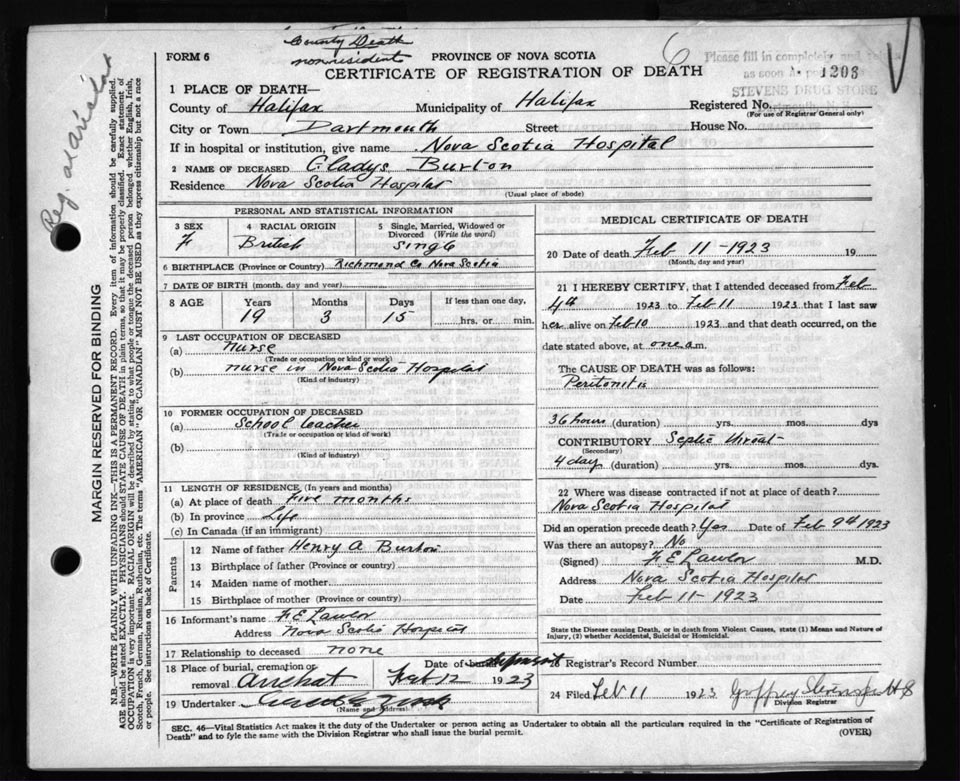 County Death
nonresident
6
FORM 6
PROVINCE OF NOVA SCOTIA
CERTIFICATE OF REGISTRATION OF DEATH
Please fill in completely and
as soon 1203
STEVENS DRUG STORE
1 PLACE OF DEATH—
County of Halifax Municipality of Halifax Registered No.
(For use of Registrar General only)
City or Town Dartmouth Street House No.
If in hospital or institution, give name Nova Scotia Hospital
2 NAME OF DECEASED Gladys Burton
Residence Nova Scotia Hospital
(Usual place of abode)
PERSONAL AND STATISTICAL INFORMATION
3 SEX 4 RACIAL ORIGIN 5 Single, Married, Widowed or Divorced (Write the word)
F British Single
6 BIRTHPLACE (Province or Country) Richmond Co Nova Scotia
7 DATE OF BIRTH (month, day and year)
8 AGE Years Months Days If less than one day,
19 3 15 hrs. or min.
9 LAST OCCUPATION OF DECEASED
(a) Nurse
(Trade or occupation or kind or work)
(b) nurse in Nova Scotia Hospital
(Kind of industry)
10 FORMER OCCUPATION OF DECEASED
(a) School teacher
(Trade or occupation or kind of work)
(b)
(Kind of industry)
11 LENGTH OF RESIDENCE (In years and months)
(a) At place of death Five months
(b) In province Life
(c) In Canada (if an immigrant)
Parents
12 Name of father Henry A Burton
13 Birthplace of father (Province or country)
14 Maiden name of mother
15 Birthplace of mother (Province or country)
16 Informant's name F E Lawlor
Address Nova Scotia Hospital
17 Relationship to deceased none
18 Place of burial, cremation or removal Arichat Date of Feb 12 1923
19 Undertaker
(Name and address)
MEDICAL CERTIFICATE OF DEATH
20 DATE OF DEATH Feb 11-1923 19
(Month, day and year)
21 I HEREBY CERTIFY, that I attended deceased from Feb
4th 1923 to Feb 11 1923 that I last saw
her alive on Feb 10 1923 and that death occurred, on
date stated above, at one a.m.
The CAUSE OF DEATH was as follows:
Peritonitis
36 hours (duration) yrs. mos. dys
CONTRIBUTORY Septic throat
(Secondary)
4 day (duration) yrs. mos. dys.
22 Where was disease contracted if not at place of death?
Nova Scotia Hospital
Did an operation precede death? Yes Date of Feb 9th 1923
Was there an autopsy? No
(Signed) F E Lawlor M.D.
Address Nova Scotia Hospital
Date Feb 11-1923
State the Disease causing Death, or in death from Violent Causes, state (1) Means and Nature of
Injury, (2) whether Accidental, Suicidal or Homicidal.
Registrar's Record Number
24 Filed Feb 11 1923
Division Registrar
SEC. 46—Vital Statistics Act makes it the duty of the Undertaker or person acting as Undertaker to obtain all the particulars required in the "Certificate of Registration of
Death" and to fyle the same with the Division Registrar who shall issue the burial permit. (OVER)
MARGIN RESERVED FOR BINDING
N.B.—WRITE PLAINLY WITH UNFADING INK—THIS IS A PERMANENT RECORD. Every item of information should be carefully supplied.
AGE should be stated EXACTLY. PHYSICIANS should STATE CAUSE OF DEATH in plain terms, so that it may be properly classified. Exact statement of
OCCUPATION is very important. RACIAL ORIGIN will be described by stating to what people or tongue the deceased person belonged whether English, Irish,
Scotch, French, German, Russian, Ruthenian, etc. The terms "AMERICAN" OR "CANADIAN" MUST NOT BE USED as they express citizenship but not a race
or people. See instructions on back of Certificate.